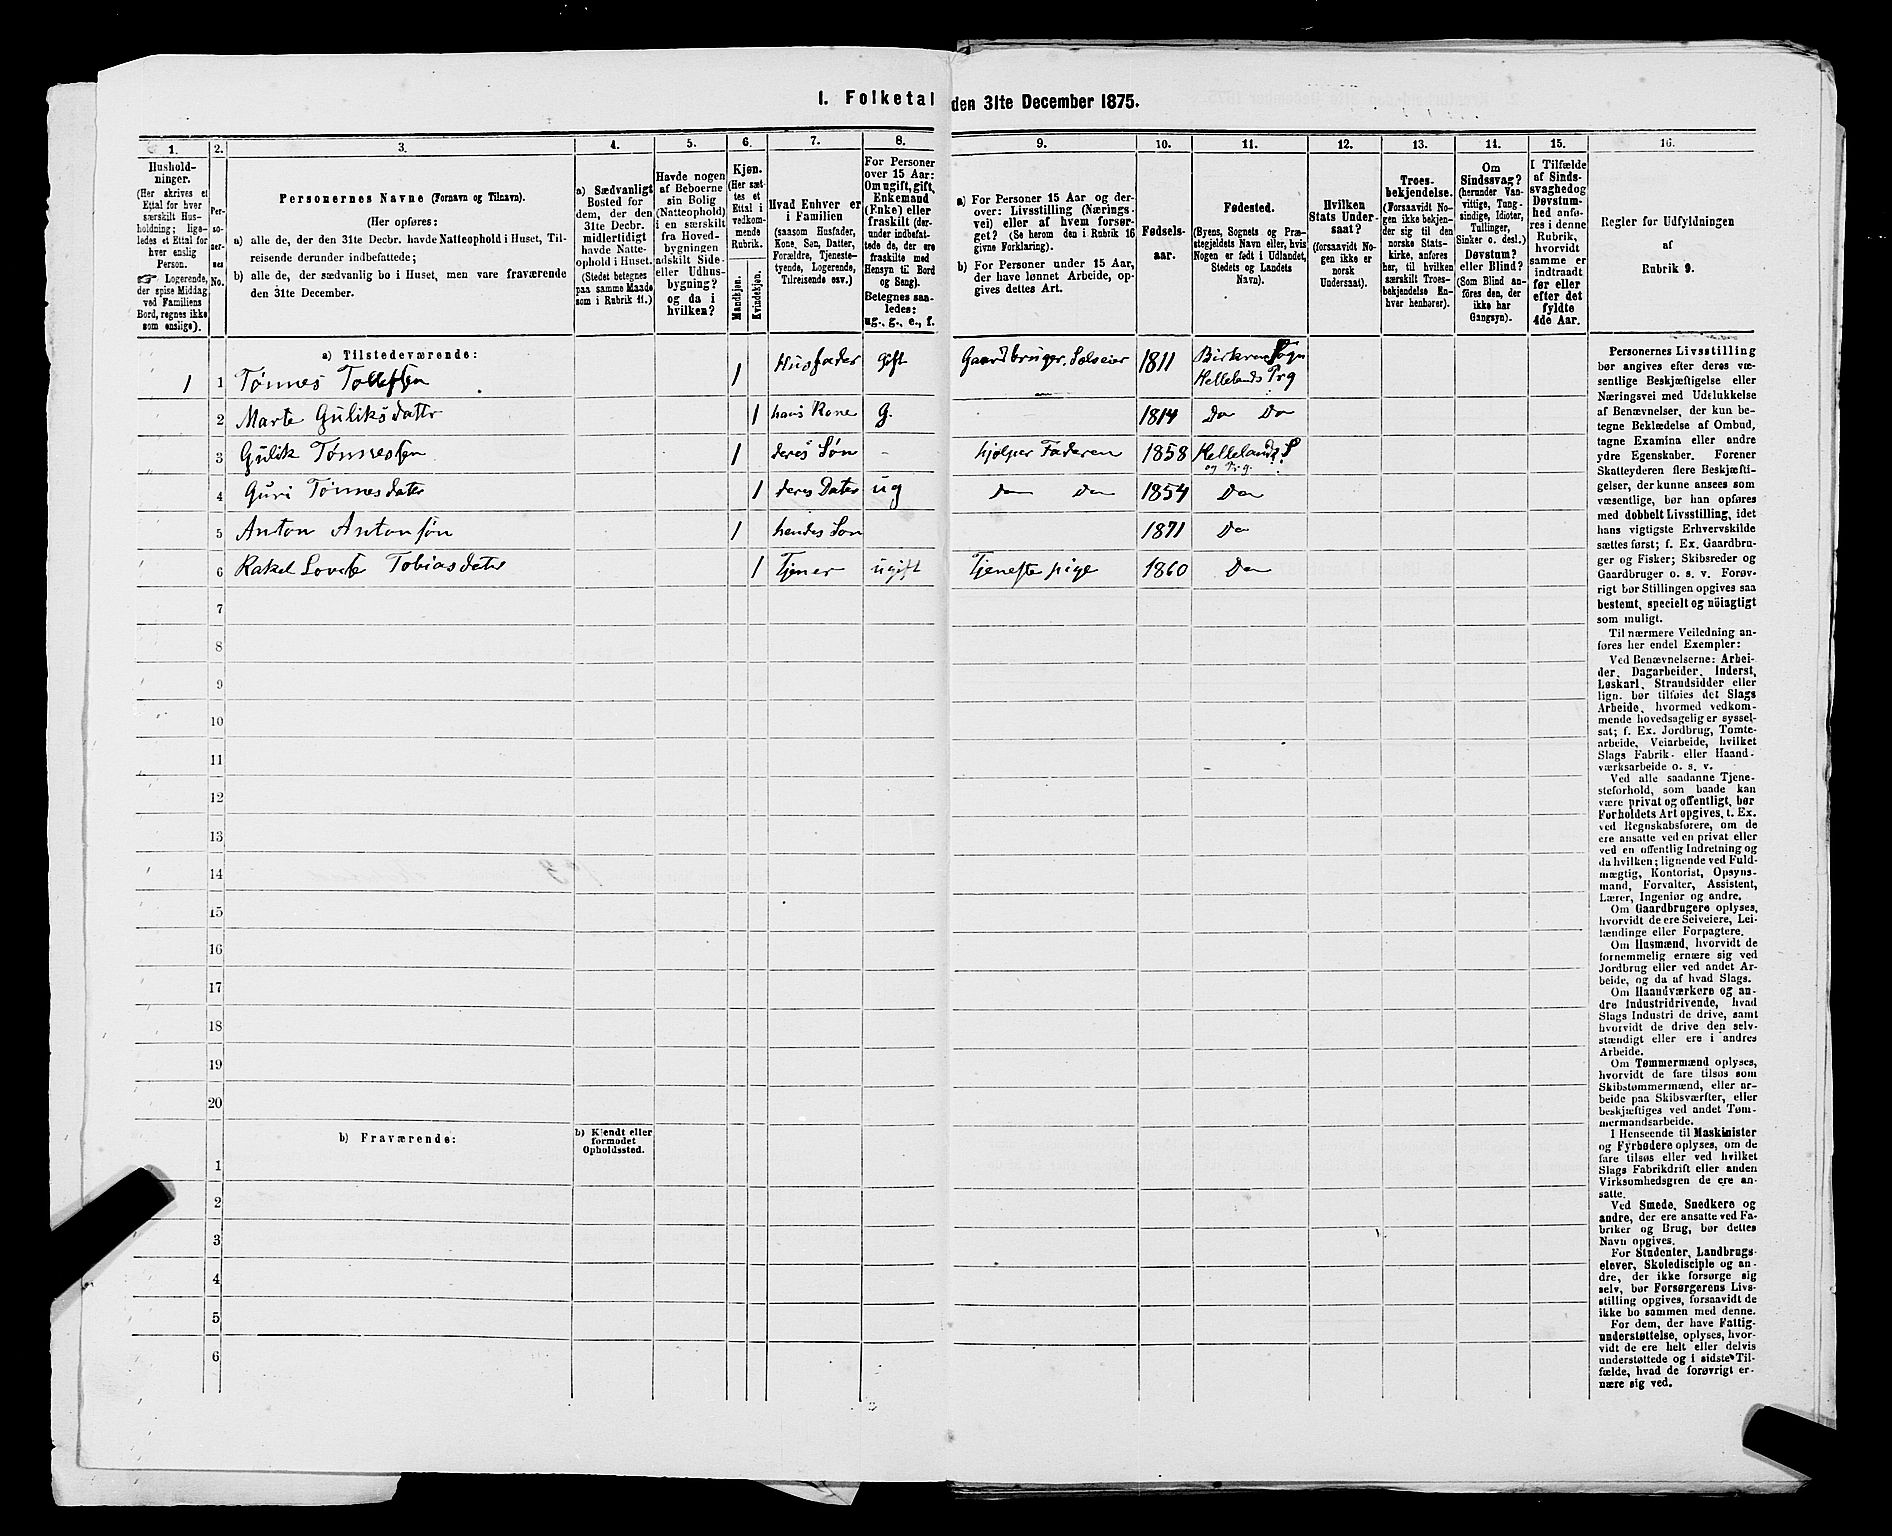 I. Folketal den 31te December 1875.
1. 2. 3. 4. 5. 6. 7. 8. 9. 10. 11. 12. 13. 14. 15. 16.
Hushold-
ninger.
(Her skrives et
Ettal for hver
særskilt Hus-
holdning; lige-
ledes et Ettal for
hver enslig
Person.
☞ Logerende,
der spise Middag
ved Familiens
Bord, regnes ikke
som enslige).
Per-
so-
ner-
nes
No.
Personernes Navne (Fornavn og Tilnavn).
(Her opføres:
a) alle de, der den 31te Decbr. havde Natteophold i Huset, Til-
reisende derunder indbefattede;
b) alle de, der sædvanlig bo i Huset, men vare fraværende
den 31te December.
a) Sædvanligt
Bosted for
dem, der den
31te Decbr.
midlertidigt
havde Natte-
ophold i Huset.
(Stedet betegnes
paa samme Maade
som i Rubrik 11.)
Havde nogen
af Beboerne
sin Bolig
(Natteophold)
i en særskilt
fra Hoved-
bygningen
adskilt Side-
eller Udhus-
bygning?
og da i
hvilken?
Kjøn.
(Her sæt-
tes et
Ettal i
vedkom-
mende
Rubrik.
Mandkjøn.
Kvindekjøn.
Hvad Enhver er
i Familien
(saasom Husfader,
Kone, Søn, Datter,
Forældre, Tjeneste-
tyende, Logerende,
Tilreisende osv.)
For Personer
over 15 Aar:
Om ugift, gift,
Enkemand
(Enke) eller
fraskilt (der-
under indbefat-
tede de, der ere
fraskilte med
Hensyn til Bord
og Seng).
Betegnes saa-
ledes:
ug., g., e., f.
a) For Personer 15 Aar og der-
over: Livsstilling (Nærings-
vei) eller af hvem forsør-
get? (Se herom den i Rubrik 16
givne Forklaring).
b) For Personer under 15 Aar,
der have lønnet Arbeide, op-
gives dettes Art.
Fødsels-
aar.
Fødested.
(Byens, Sognets og Præ-
stegjeldets Navn eller, hvis
Nogen er født i Udlandet,
Stedets og Landets
Navn).
Hvilken
Stats Under-
saat?
(forsaavidt No-
gen ikke er
norsk
Undersaat).
Troes-
bekjendelse.
(Forsaavidt No-
gen ikke bekjen-
der sig til den
norske Stats-
kirke, anføres
her, til hvilken
særskilt Troes-
bekjendelse En-
hver henhører).
Om
Sindssvag?
(herunder Van-
vittige, Tung-
sindige, Idioter,
Tullinger,
Sinker o. desl.)
Døvstum?
eller Blind?
(Som Blind an-
føres den, der
ikke har
Gangsyn).
I Tilfælde
af Sinds-
svaghed og
Døvstum-
hed anfø-
res i denne
Rubrik,
hvorvidt
samme er
indtraadt
før eller
efter det
fyldte
4de Aar.
Regler for Udfyldningen
af
Rubrik 9.
a) Tilstedeværende:
1 1 Tønnes Tollefsen 1 Husfader gift Gaardbruger, Selveier 1811 Birkrem Sogn
Hellelands Prg
2 Marte Guliksdatr 1 hans Kone g. 1814 Do Do
3 Gulik Tønnessen 1 deres Søn - hjelper Faderen 1858 Hellelands S
og Prg.
4 Guri Tønnesdater 1 deres Dater ug do do 1854 Do
5 Anton Antonsøn 1 hendes Søn 1871 Do
6 Rakel Lovise Tobiasdatr 1 Tjener ugift Tjenestepige 1860 Do
7
8
9
10
11
12
13
14
15
16
17
18
19
20
b) Fraværende:
b) Kjendt eller
formodet
Opholdssted.
1
2
3
4
5
6
Personernes Livsstilling
bør angives efter deres væ-
sentlige Beskjæftigelse eller
Næringsvei med Udelukkelse
af Benævnelser, der kun be-
tegne Beklædelse af Ombud,
tagne Examina eller andre
ydre Egenskaber. Forener
Skatteyderen flere Beskjæfti-
gelser, der kunne ansees som
væsentlige, bør han opføres
med dobbelt Livsstilling, idet
hans vigtigste Erhvervskilde
sættes først; f. Ex. Gaardbru-
ger og Fisker; Skibsreder og
Gaardbruger o. s. v. Forøv-
rigt bør Stillingen opgives saa
bestemt, specielt og nöiagtigt
som muligt.
Til nærmere Veiledning an-
føres her endel Exempler:
Ved Benævnelserne: Arbei-
der, Dagarbeider, Inderst,
Løskarl, Strandsidder eller
lign. bør tilføies det Slags
Arbeide, hvormed vedkom-
mende hovedsagelig er syssel-
sat; f. Ex. Jordbrug, Tomte-
arbeide, Veiarbeide, hvilket
Slags Fabrik- eller Haand-
værksarbeide o. s. v.
Ved alle saadanne Tjene-
steforhold, som baade kan
være privat og offentligt, bør
Forholdets Art opgives, t. Ex.
ved Regnskabsførere, om de
ere ansatte ved en privat eller
ved en offentlig Indretning og
da hvilken; lignende ved Fuld-
mægtig, Kontorist, Opsyns-
mand, Forvalter, Assistent,
Lærer, Ingeniør og andre.
Om Gaardbrugere oplyses,
hvorvidt de ere Selveiere, Lei-
lændinge eller Forpagtere.
Om Husmænd, hvorvidt de
fornemmelig ernære sig ved
Jordbrug eller ved andet Ar-
beide, og da af hvad Slags.
Om Haandværkere og an-
dre Industridrivende, hvad
Slags Industri de drive, samt
hvorvidt de drive den selv-
stændigt eller ere i andres
Arbeide.
Om Tømmermænd oplyses,
hvorvidt de fare tilsøs som
Skibstømmermænd, eller ar-
beide paa Skibsværfter, eller
beskjæftiges ved andet Tøm-
mermandsarbeide.
I Henseende til Maskinister
og Fyrbødere oplyses, om de
fare tilsøs eller ved hvilket
Slags Fabrikdrift eller anden
Virksomhedsgren de ere an-
satte.
Ved Smede, Snedkere og
andre, der ere ansatte ved Fa-
briker og Brug, bør dettes
Navn opgives.
For Studenter, Landbrugs-
elever, Skoledisciple og an-
dre, der ikke forsørge sig
selv, bør Forsørgerens Livs-
stilling opgives, forsaavidt de
ikke bo sammen med denne.
For dem, der have Fattig-
understøttelse, oplyses, hvor-
vidt de ere helt eller delvis
understøttede og i sidste Til-
fælde, hvad de forøvrigt er-
nære sig ved.